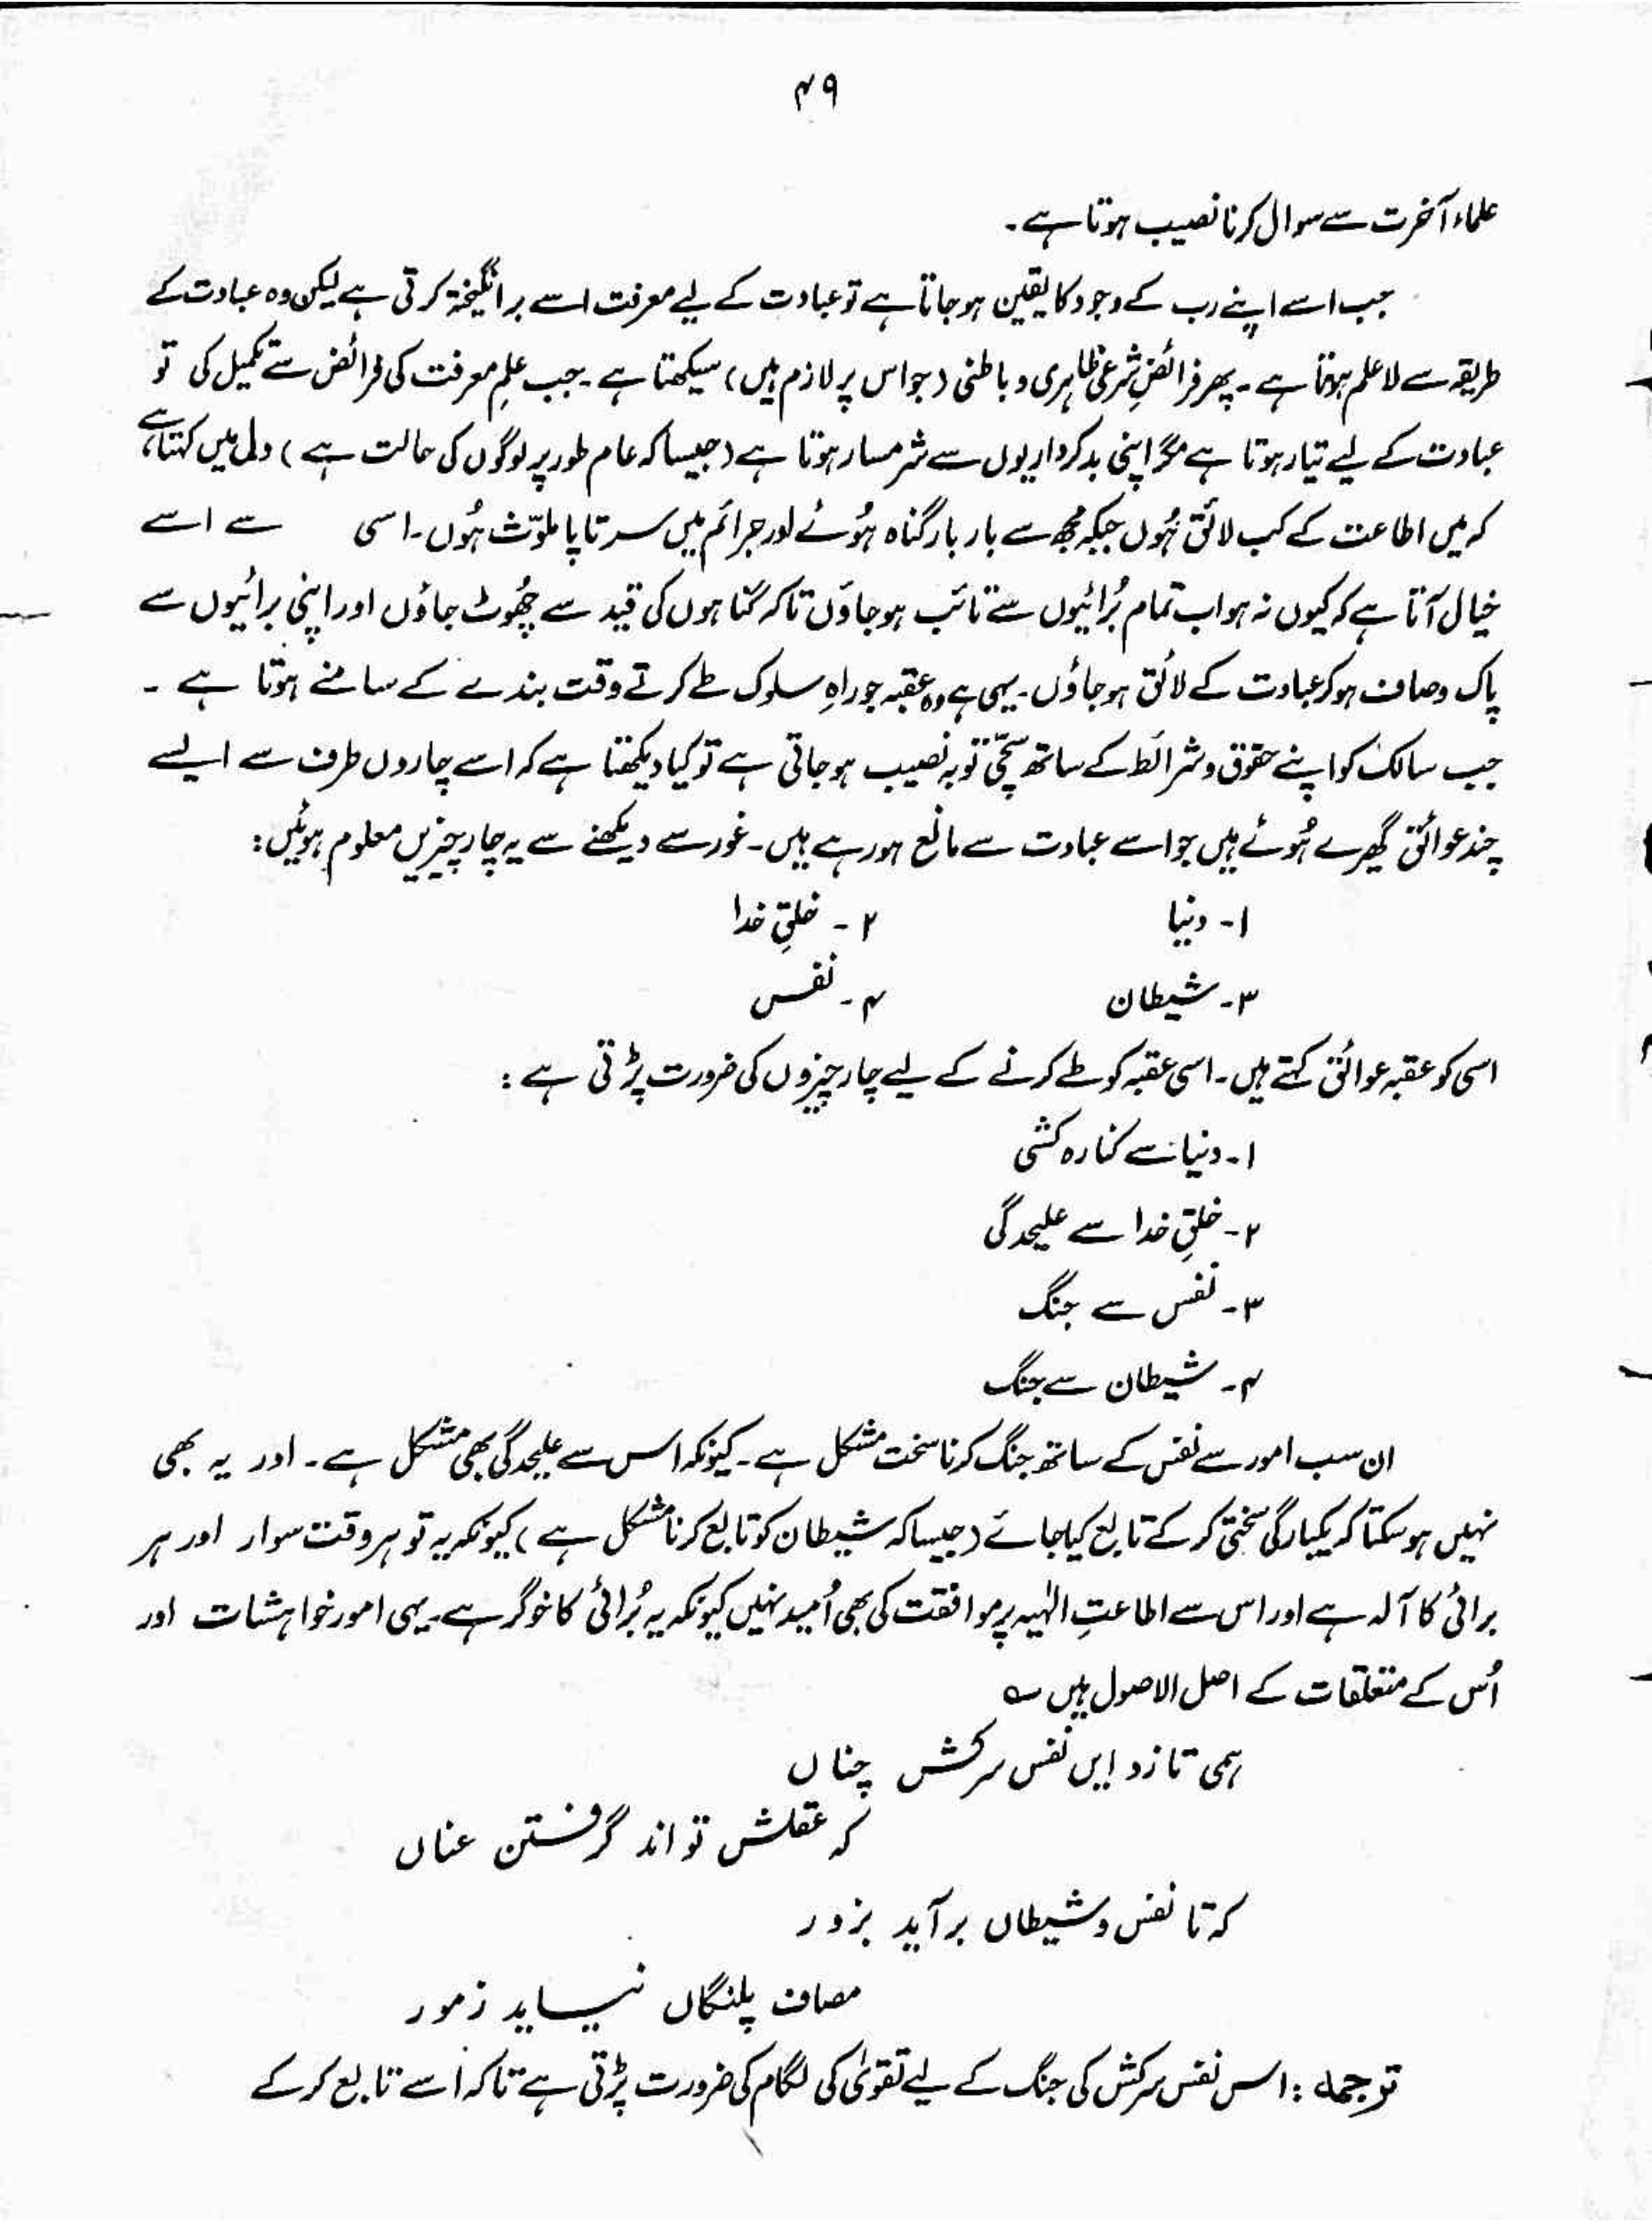 ۴۹
علماء آخرت سے سوال کرنا نصیب ہوتا ہے۔
جب اسے اپنے رب کے وجود کا یقین ہو جاتا ہے تو عبادت کے لیے معرفت اسے برانگیختہ کرتی ہے لیکن وہ عبادت کے
طریقہ سے لاعلم ہوتا ہے۔ پھر فرائضِ شرعی ظاہری و باطنی (جو اس پر لازم ہیں) سیکھتا ہے۔ جب علمِ معرفت کی فرائض سے تکمیل کی تو
عبادت کے لیے تیار ہوتا ہے مگر اپنی بدکرداریوں سے شرمسار ہوتا ہے (جیسا کہ عام طور پر لوگوں کی حالت ہے) دل میں کہتا ہے
کہ میں اطاعت کے کب لائق ہُوں جبکہ مجھ سے بار بار گناہ ہُوئے اور جرائم میں سرتاپا ملوّث ہُوں۔ اسی سے اسے
خیال آتا ہے کہ کیوں نہ ہو اب تمام بُرائیوں سے تائب ہو جاؤں تاکہ گناہوں کی قید سے چُھوٹ جاؤں اور اپنی برائیوں سے
پاک و صاف ہو کر عبادت کے لائق ہو جاؤں۔ یہی ہے وہ عقبہ جو راہِ سلوک طے کرتے وقت بندے کے سامنے ہوتا ہے۔
جب سالک کو اپنے حقوق و شرائط کے ساتھ سچّی توبہ نصیب ہو جاتی ہے تو کیا دیکھتا ہے کہ اسے چاروں طرف سے ایسے
چند عوائق گھیرے ہُوئے ہیں جو اسے عبادت سے مانع ہو رہے ہیں۔ غور سے دیکھنے سے یہ چار چیزیں معلوم ہوئیں:
۱- دنیا ۲- خلقِ خدا
۳- شیطان ۴- نفس
اسی کو عقبہ عوائق کہتے ہیں۔ اسی عقبہ کو طے کرنے کے لیے چار چیزوں کی ضرورت پڑتی ہے:
۱- دنیا سے کنارہ کشی
۲- خلقِ خدا سے علیحدگی
۳- نفس سے جنگ
۴- شیطان سے جنگ
ان سب امور سے نفس کے ساتھ جنگ کرنا سخت مشکل ہے۔ کیونکہ اس سے علیحدگی بھی مشکل ہے۔ اور یہ بھی
نہیں ہو سکتا کہ یکبارگی سختی کر کے تابع کیا جائے (جیسا کہ شیطان کو تابع کرنا مشکل ہے) کیونکہ یہ تو ہر وقت سوار اور ہر
برائی کا آلہ ہے اور اس سے اطاعتِ الٰہیہ پر موافقت کی بھی اُمید نہیں کیونکہ یہ بُرائی کا خوگر ہے۔ یہی امور خواہشات اور
اُس کے متعلقات کے اصل الاصول ہیں ؎
ہمی تازد ایں نفس سرکش چناں
کہ عقلش تواند گرفتن عناں
کہ تا نفس و شیطاں برآید بزور
مصاف پلنگاں نیساید زمور
ترجمہ: اس نفس سرکش کی جنگ کے لیے تقویٰ کی لگام کی ضرورت پڑتی ہے تاکہ اُسے تابع کر کے